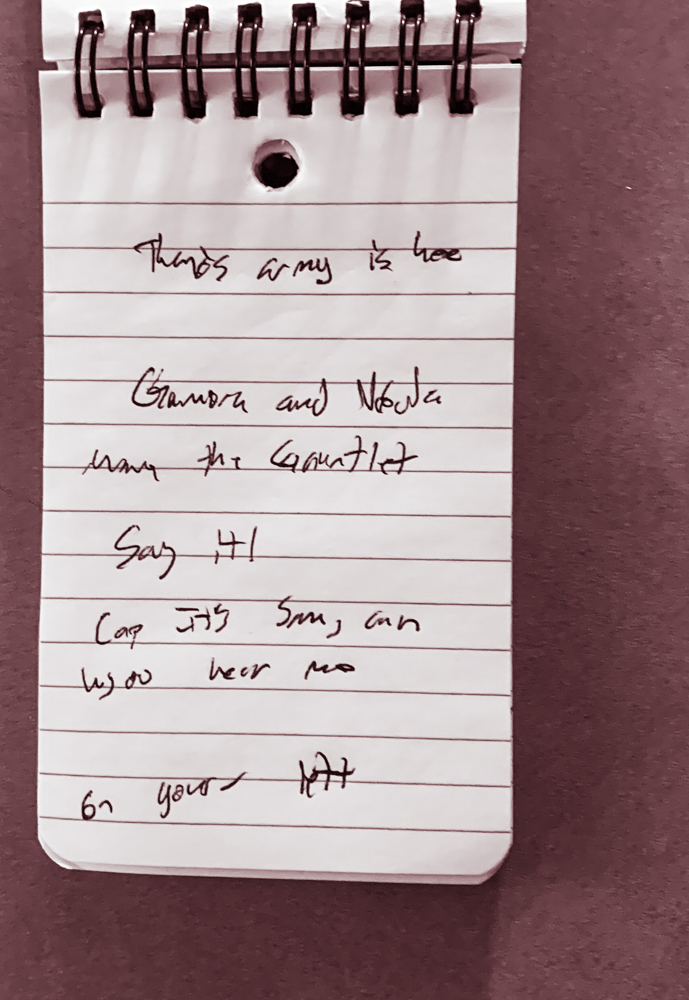 Thano's army is here
Gamora and Nebula
have the Gauntlet
Say it!
Cap It's Sam, can
you hear me
On your left